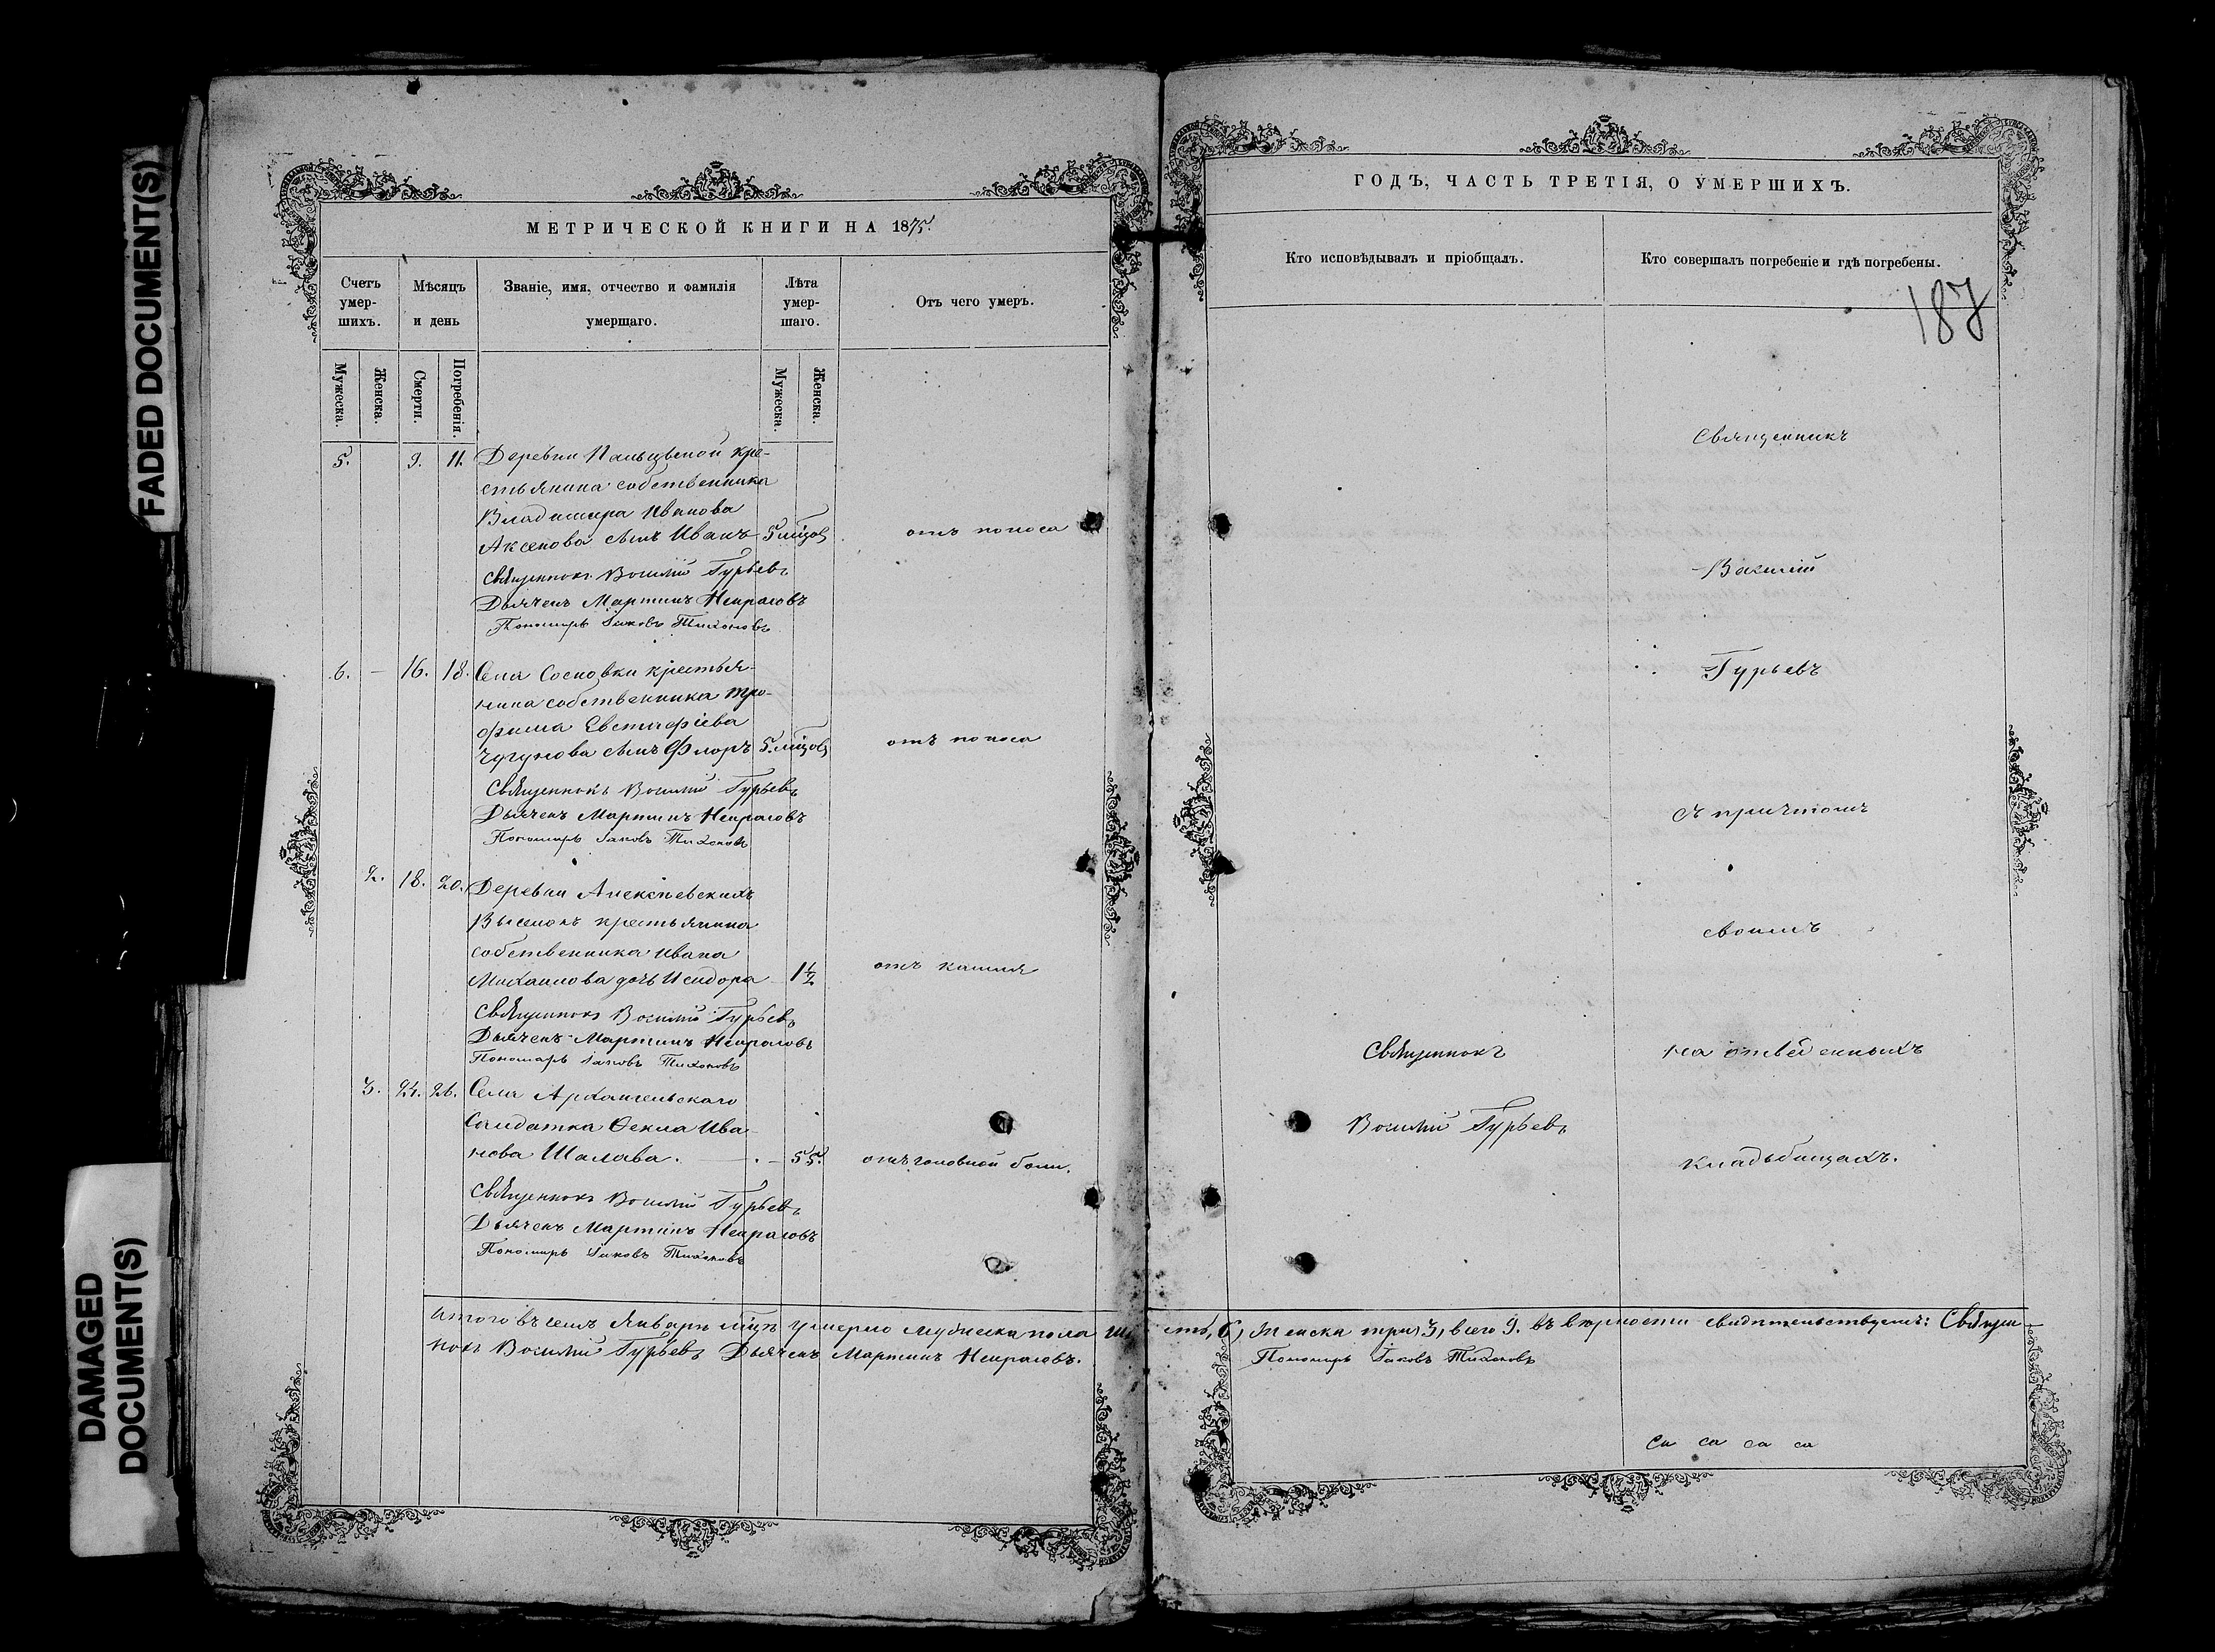 FADED DOCUMENT(S)
DAMAGED
DOCUMENT(S)
МЕТРИЧЕСКОЙ КНИГИ НА 1875.
Счетъ умер-шихъ.
Мѣсяцъ и день
Званіе, имя, отчество и фамилія умершаго.
Лѣта умер-шаго.
Отъ чего умеръ.
Мужеска.
Женска.
Смерти.
Погребенія.
Мужеска.
Женска.
5. 9. 11. Деревни Пальцѣвой кре-
стьянина собственника
Владимира Иванова
Аксенова сынъ Иванъ 5 мцов отъ поноса
Священникъ Василій Гурьевъ
Дьячекъ Мартинъ Некрасовъ
Пономарь Іаковъ Тихоновъ
6. — 16. 18. Села Сосновки крестья-
нина собственника Тро-
фима Евстафіева
Чугунова сынъ Флоръ 5. мцов отъ поноса
Священникъ Василій Гурьевъ
Дьячекъ Мартинъ Некрасовъ
Пономарь Іаковъ Тихоновъ
2. 18. 20. Деревни Алексѣевскихъ
Выселокъ крестьянина
собственника Ивана
Михаилова дочь Исидора 1½ отъ кашля
Священникъ Василій Гурьевъ
Дьячекъ Мартинъ Некрасовъ
Пономарь Іаковъ Тихоновъ
3. 24. 26. Села Архангельскаго
Солдатка Ѳекла Ива-
нова Шалава. — . — 55. отъ головной боли.
Священникъ Василій Гурьевъ
Дьячекъ Мартинъ Некрасовъ
Пономарь Іаковъ Тихоновъ
Итого въ семъ Январѣ мцѣ умерло мужеска пола ше-
никъ Василій Гурьевъ Дьячекъ Мартинъ Некрасовъ.
ГОДЪ, ЧАСТЬ ТРЕТІЯ, О УМЕРШИХЪ.
Кто исповѣдывалъ и пріобщалъ.
Кто совершалъ погребеніе и гдѣ погребены.
187
Священникъ
Василій
Гурьевъ
съ причтомъ
своимъ
Священникъ на отведенныхъ
Василій Гурьевъ
кладьбищахъ.
сть, 6, женска три, 3, всего 9. въ вѣрности свидѣтельствуемъ: Священ
Пономарь Іаковъ Тихоновъ